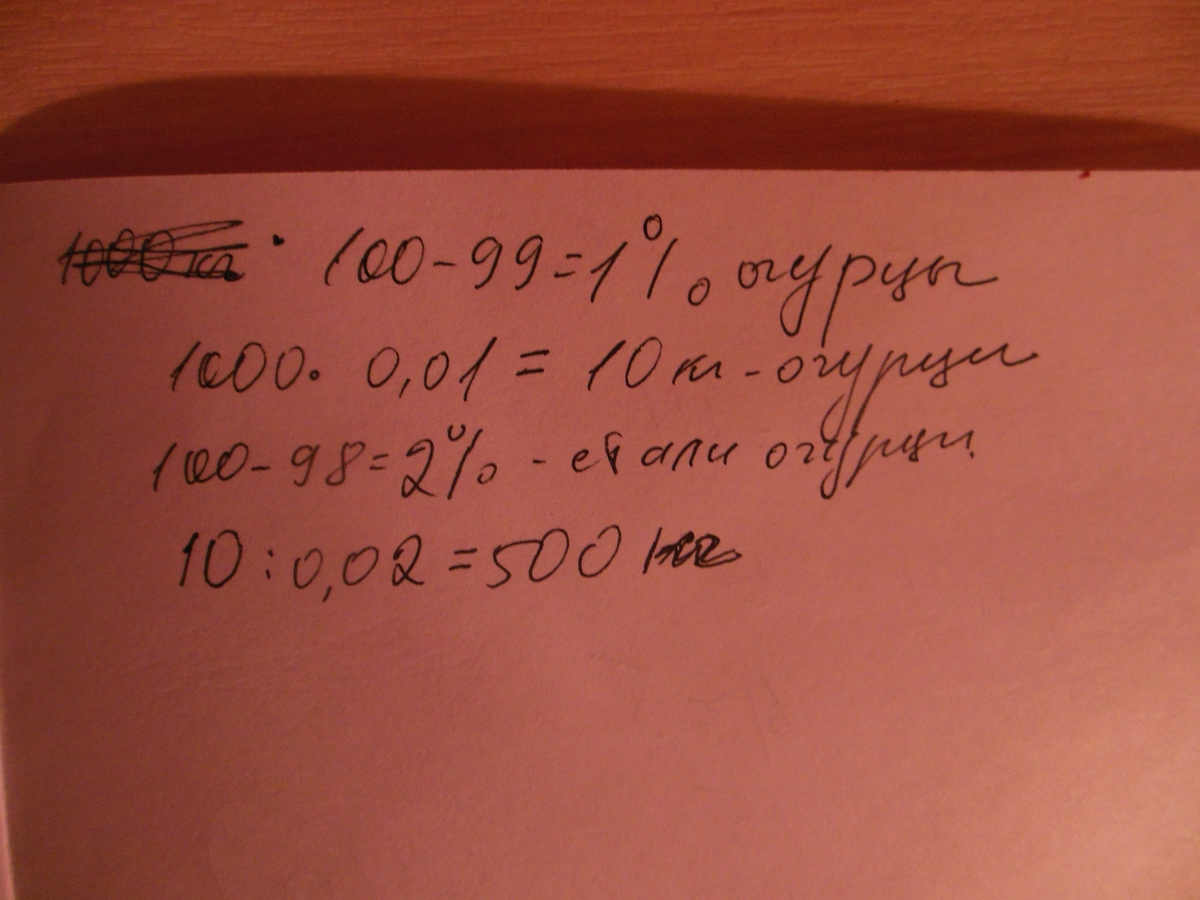 100-99=1% огурцы
1000. 0,01 = 10 кг - огурцы
100-98=2% - стали огурцы.
10:0,02=500 кг